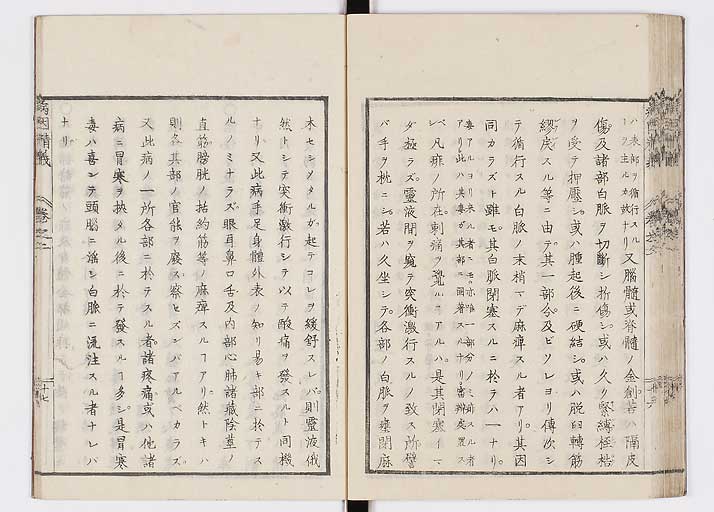 ハ表部ヲ循行スル
ーヲ主ルカ故ナリ 又脳髄或脊髄ノ金創若ハ隔皮
傷及諸部白脈ヲ切斷シ折傷シ或ハ久ク緊縛桎梏
ヲ受テ押壓シ或ハ腫起後ニ硬結シ或ハ脱臼轉筋
繆戻スル等ニ由テ其一部分及ビソレヨリ傳次シ
テ循行スル白脈ノ末梢マデ麻痺スル者アリ其因
同カラズト雖モ其白脈閉塞スルニ於テハ一ナリ
毒アルヨリ来ル者ニモ亦唯一部分ノミ前スル者
アリ此ハ其毒ガ其部ニ固着スルナリ審辨處置ス
ベシ 凡痱ノ所在刺痛ヲ覺ルーアルハ是其閉塞イマ
ダ極ラズ靈液間ヲ窺テ突衝激行スルノ致ス所譬
バ手ヲ枕ニシ若ハ久坐シテ各部ノ白脈ヲ壅閉麻
木セシメタルガ起テコレヲ緩舒スレバ則靈液俄
然トシテ突衝激行シテ以テ酸痛ヲ發スルト同機
ナリ又此病手足身體外表ノ知リ易キ部ニ於テス
ルノミナラズ眼耳鼻口舌及内部心肺諸藏陰莖ノ
直筋膀胱ノ括約筋等ノ麻痺スルーアリ然トキハ
則各其部ノ官能ヲ廢ス察セズンバアルベカラズ
又此病ノ一所各部ニ於テスル者諸疼痛或ハ他諸
病ニ冒寒ヲ挾タル後ニ於テ發スルー多シ是冒寒
毒ハ喜ンデ頭脳ニ溢シ白脈ニ流注スル者ナレバ
ナリ
病因精義
卷之二
十七